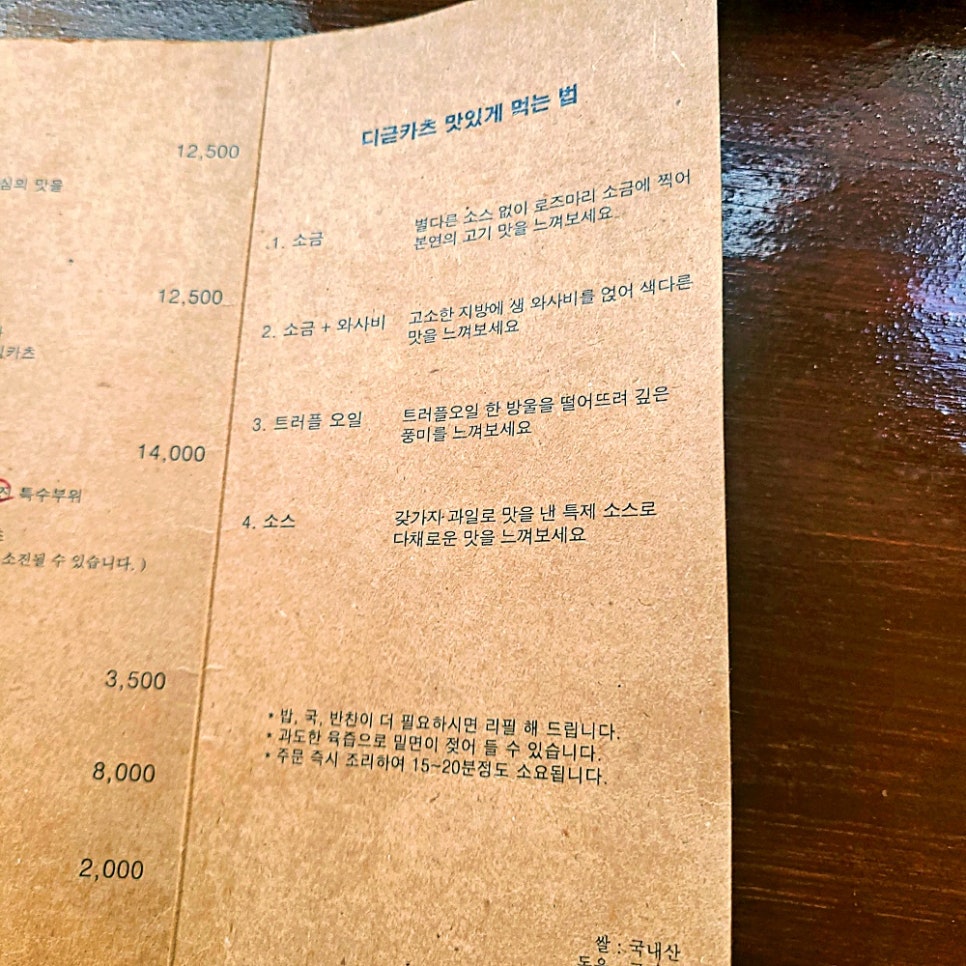 12,500
심의 맛을
12,500
카츠
14,000
특수부위
소진될 수 있습니다. )
3,500
8,000
2,000
디귿카츠 맛있게 먹는 법
1. 소금
별다른 소스 없이 로즈마리 소금에 찍어
본연의 고기 맛을 느껴보세요.
2. 소금 + 와사비
고소한 지방에 생 와사비를 얹어 색다른
맛을 느껴보세요
3. 트러플 오일
트러플오일 한 방울을 떨어뜨려 깊은
풍미를 느껴보세요
4. 소스
갖가지 과일로 맛을 낸 특제 소스로
다채로운 맛을 느껴보세요
* 밥, 국, 반찬이 더 필요하시면 리필 해 드립니다.
* 과도한 육즙으로 밑면이 젖어 들 수 있습니다.
* 주문 즉시 조리하여 15~20분정도 소요됩니다.
쌀 : 국내산